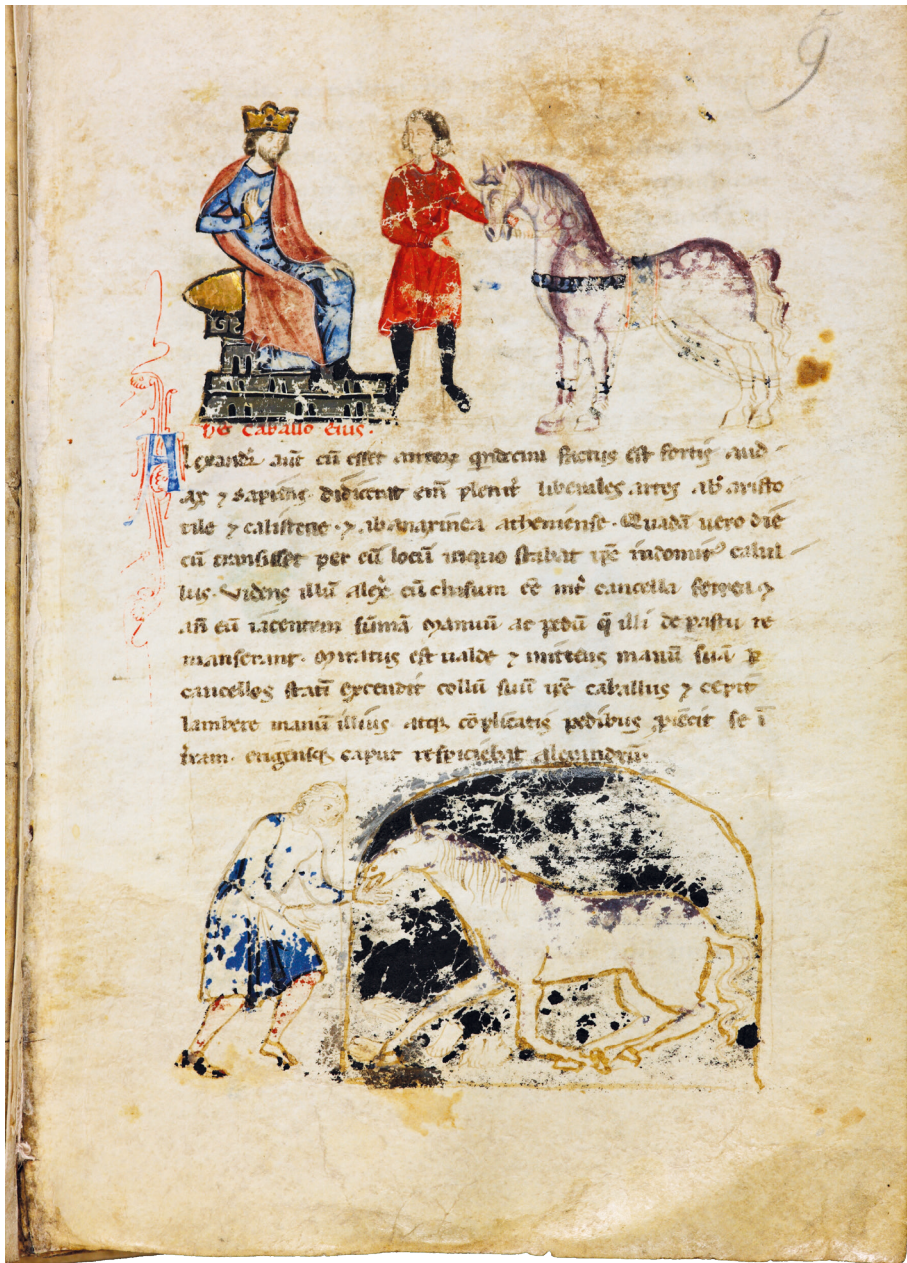 9
De caballo eius.
Alexander aut̄ cū esset annorꝫ qindecim factus est fortis aud
ax ⁊ sapiens didicerat eī plenit̄ liberales artes ab aristo
tile ⁊ calistene ⁊ ab anaximea atheniense. Quadā uero die
cū transisset per eū locū in quo stabat ip̄e indomit᾽ cabal
lus. Videns illū alex̄ cū clusum eē int̄ cancella ferrea ⁊
añ eū iacentem sūmā manuū ac pedū q̄ illi de pastu re
manserant. Miratus est ualde ⁊ mittens manū suā ꝑ
cancellos statī extendit collū suū ip̄e caballus ⁊ cepit
lambere manū illius atqꝫ cōplicatis pedibus ꝓiecit se ī
t̄ram. erigensqꝫ caput respiciebat alexandrū.